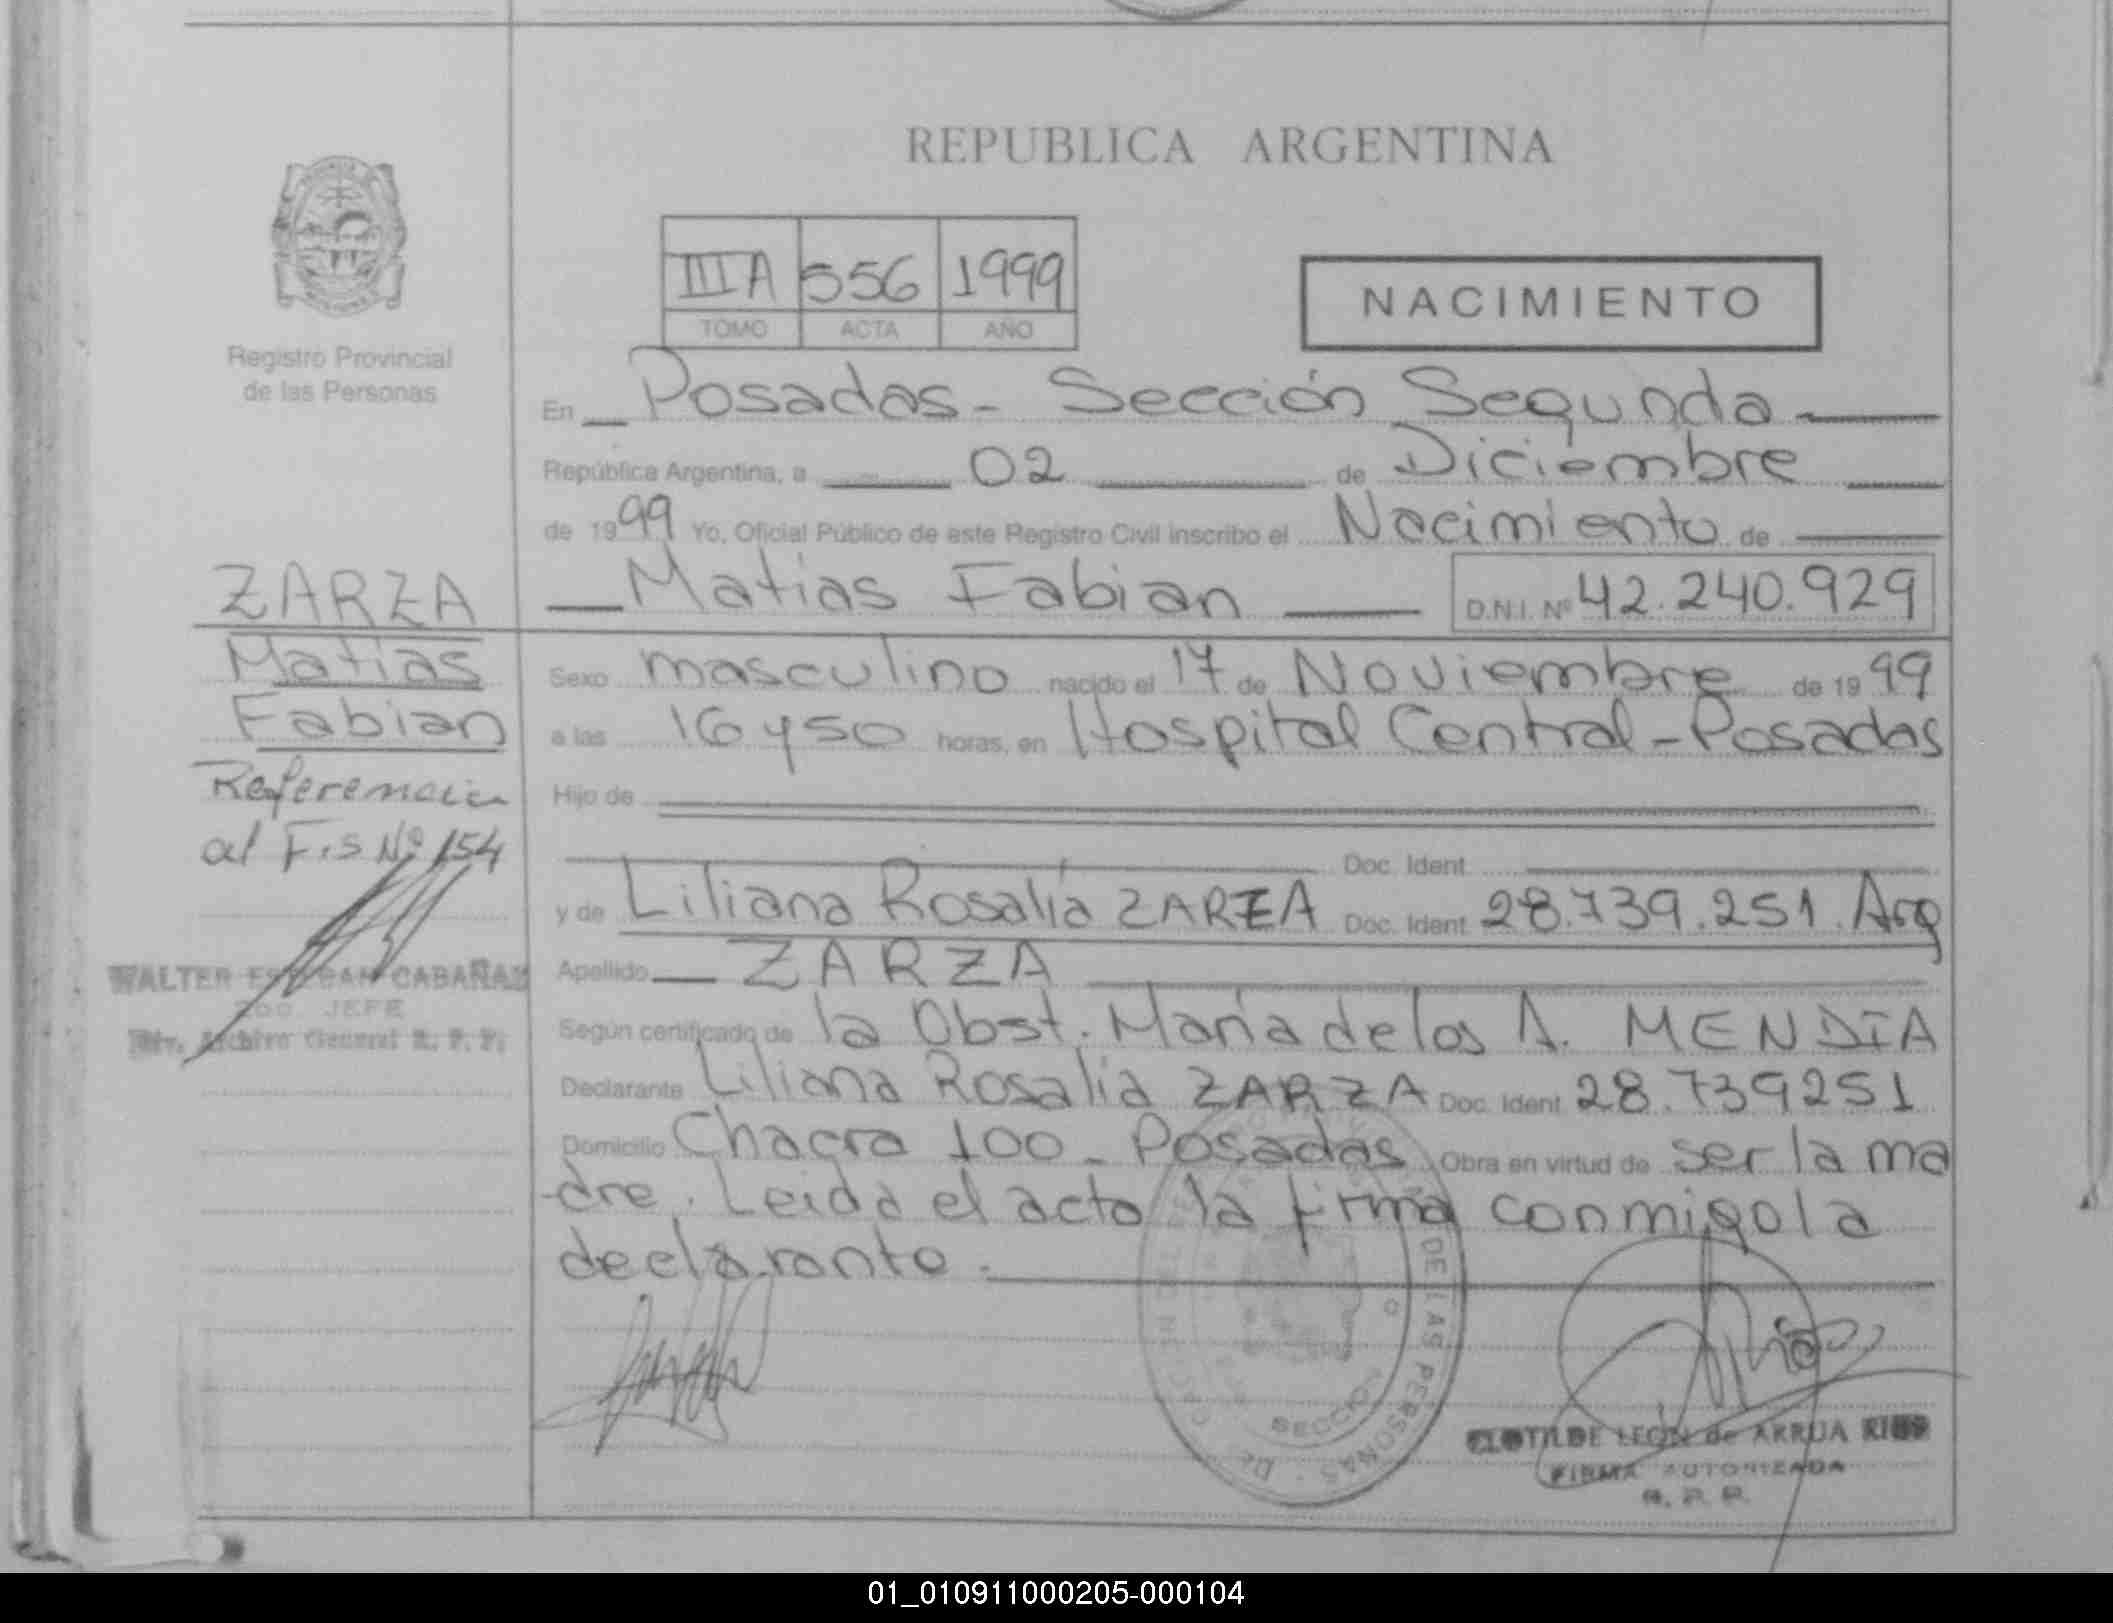 REPUBLICA ARGENTINA
IIIA 556 1999
TOMO ACTA AÑO
NACIMIENTO
Registro Provincial
de las Personas
En Posadas - Sección Segunda
República Argentina, a 02 de Diciembre
de 1999 Yo, Oficial Público de este Registro Civil inscribo el Nacimiento de
Matias Fabian D.N.I. Nº 42.240.929
ZARZA
Matias
Fabian
Referencia
al F.s Nº 154
WALTER ESTEBAN CABAÑAS
2do. JEFE
Div. Archivo General R. P. P.
Sexo masculino nacido el 17 de Noviembre de 1999
a las 16 y 50 horas, en Hospital Central - Posadas
Hijo de
Doc. Ident
y de Liliana Rosalía ZARZA Doc. Ident 28.739.251. Arg
Apellido ZARZA
Según certificado de la Obst. María de los A. MENDIA
Declarante Liliana Rosalia ZARZA Doc. Ident 28.739251
Domicilio Chacra 100 - Posadas Obra en virtud de ser la ma
-dre. Leida el acta la firma conmigo la
declarante.
DE LAS PERSONAS
SECCION
CLOTILDE LEON de ARRUA RIOS
FIRMA AUTORIZADA
R. P. P.
01_010911000205-000104